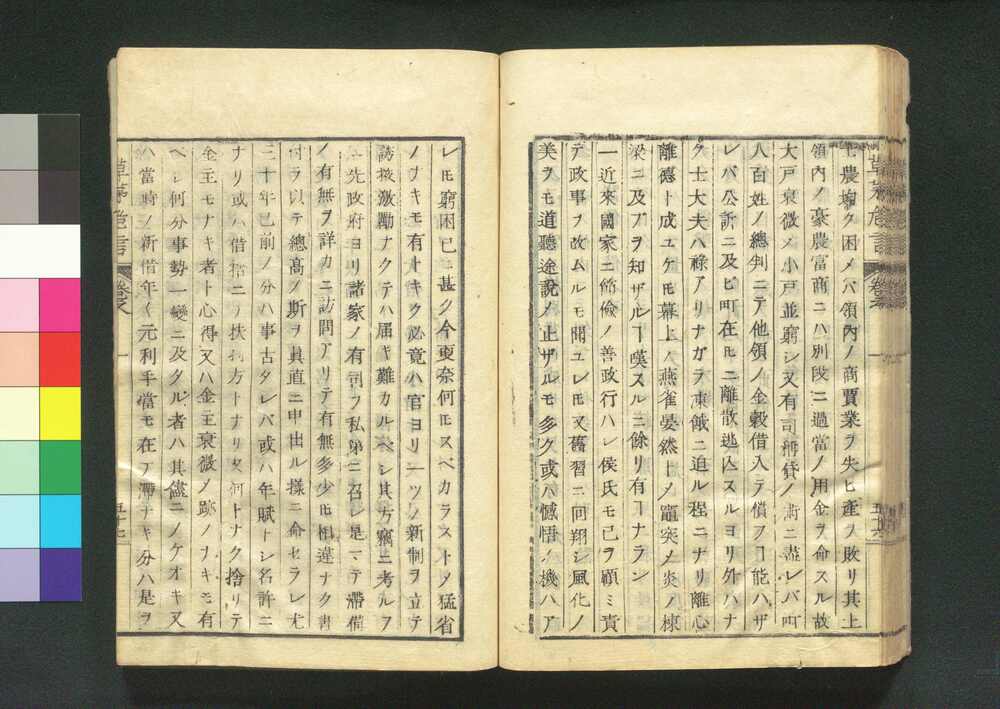 土農增々困メバ領內ノ商賈業ヲ失ヒ產ヲ敗リ其上
領內ノ豪農富商ニハ別段ニ過當ノ用金ヲ命スル故
大戶衰微メ小戶並窮シ又有司稱貸ノ術ニ盡レバ
八百姓ノ總判ニテ他領ノ金穀借入テ償フヿ能ハザ
レバ公訴ニ及ヒ町在𪜈ニ離散逃込スルヨリ外ハナ
ク士大夫ハ祿アリナガラ凍餓ニ迫ル程ニナリ離心
離德ト成ユケ𪜈幕上ノ燕雀晏然トメ竈突ノ炎ノ棟
梁ニ及フヲ知ザルヿ嘆スルニ餘リ有ヿナラン
一近來國家ニ節儉ノ善政行ハレ侯氏モ己ヲ顧ミ責
テ政事ヲ改ムルモ聞ユレ𪜈又舊習ニ回翔シ風化ノ
美ヲモ道聽途說メ止ザルモ多ク或ハ憾悟ノ機ハア
レ𪜈窮困已ニ甚ク今更奈何𪜈スベカラストメ猛省
ノナキモ有ナキク必竟ハ官ヨリ一ツノ新制ヲ立テ
誘掖激勵ナクテハ屆キ難カルベシ其方竊ニ考ルヲ
ニ先政府ヨリ諸家ノ有司ヲ私第ニ召シ是マテ滯借
ノ有無ヲ詳カニ訪問アリテ有無多少𪜈相違ナク書
付ヲ以テ總高ノ斯ヲ眞直ニ申出ル樣ニ命セラレ尤
二十年已前ノ分ハ事古タレバ或ハ年賦トシ名許ニ
ナリ或ハ借捨ニメ扶持方トナリ又何トナク捨リテ
金主モナキ者ト心得又ハ金主衰微メ跡ノナキモ有
ベシ何分事勢一變ニ及タル者ハ其儘ニノケオキ又
ハ當時ノ新借年々元利手當モ在ア滯ナキ分ハ是ヲ
草茅危言
草茅危言